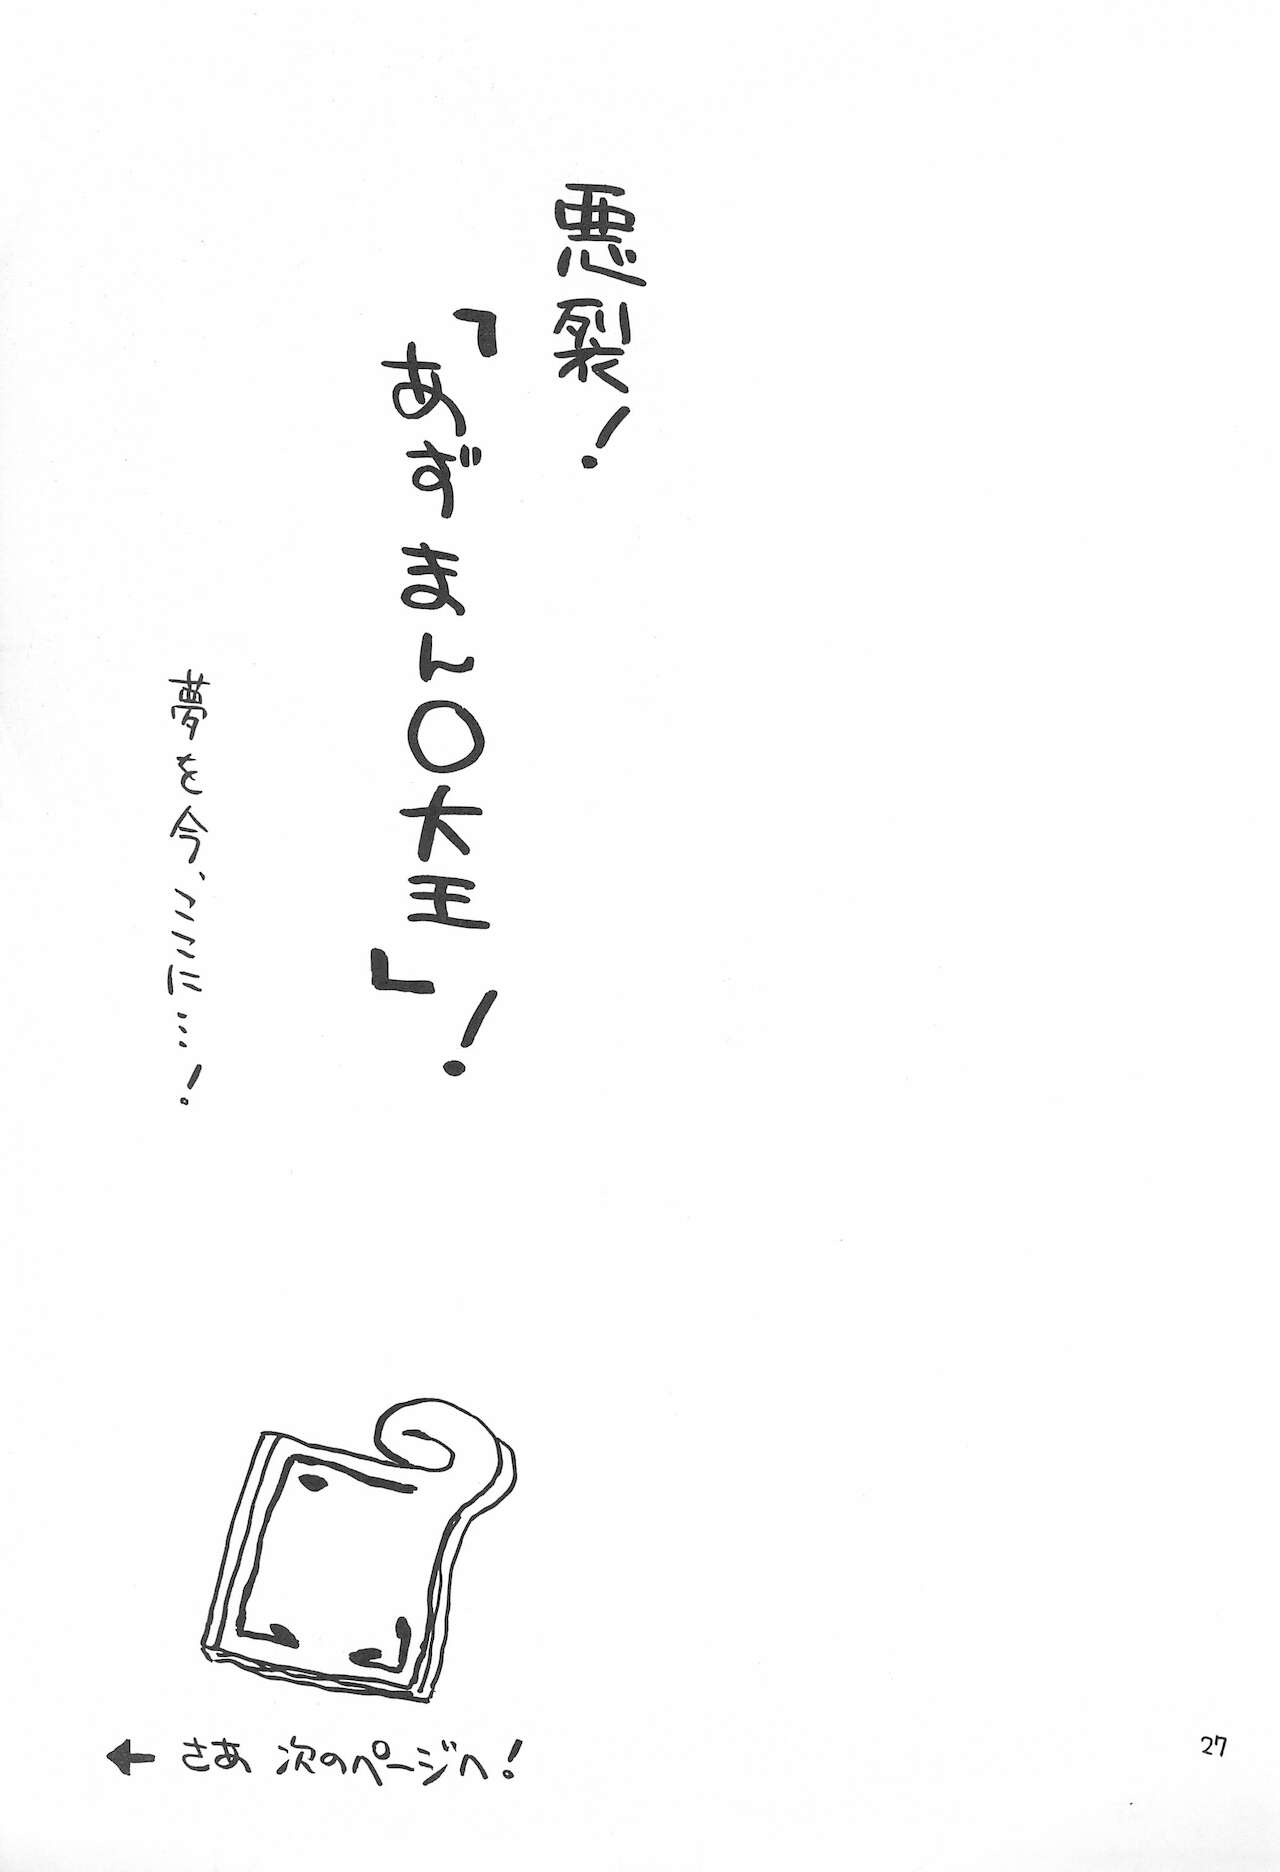 悪裂！
「あずまん〇大王」！
夢を今、ここに…！
← さあ 次のページへ！
27